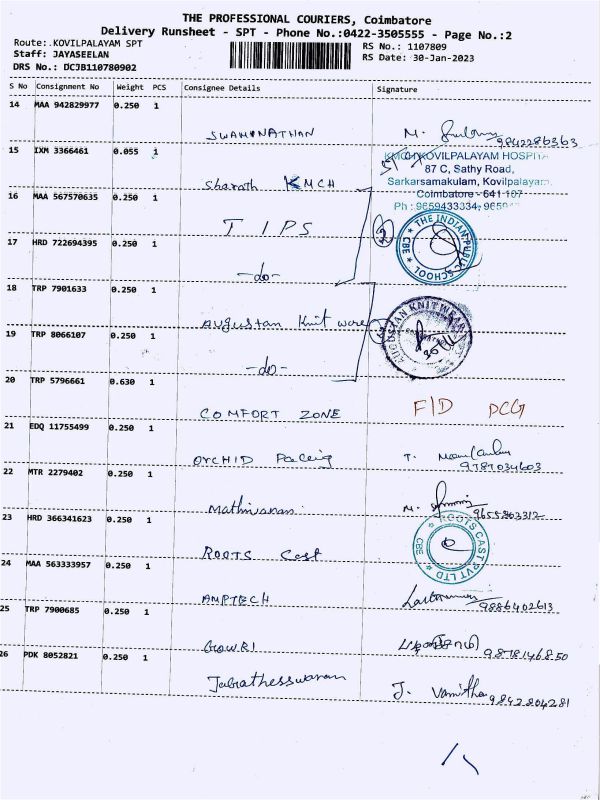 THE PROFESSIONAL COURIERS, Coimbatore
Delivery Runsheet - SPT - Phone No.:0422-3505555 - Page No.:2
Route:.KOVILPALAYAM SPT
Staff: JAYASEELAN
DRS No.: DCJB1107809O2
RS No.: 1107809
RS Date: 30-Jan-2023
S No Consignment No Weight PCS Consignee Details Signature
14 MAA 942829977 0.250 1
SWAMINATHAN M. 9842286363
15 IXM 3366461 0.055 1
Sharath KMCH
KMCH KOVILPALAYAM HOSPITA
87 C, Sathy Road,
Sarkarsamakulam, Kovilpalayam,
Coimbatore - 641 107
Ph : 9659433334,
16 MAA 567570635 0.250 1
TIPS
2
THE INDIAN PUBLIC SCHOOL CBE
17 HRD 722694395 0.250 1
-do-
18 TRP 7901633 0.250 1
Augustan Knit ware
AUGUSTAN KNITWEAR
19 TRP 8066107 0.250 1
-do-
20 TRP 5796661 0.630 1
COMFORT ZONE F/D PCG
21 EDQ 11755499 0.250 1
ORCHID T. 9787034603
22 MTR 2279402 0.250 1
Mathivanan M. 9655803312
23 HRD 366341623 0.250 1
ROOTS Cast
ROOTS CAST PVT LTD CBE
24 MAA 563333957 0.250 1
AMPTECH 9886402613
25 TRP 7900685 0.250 1
GOWRI 9878146850
26 PDK 8052821 0.250 1
J. Vanitha 9842804281